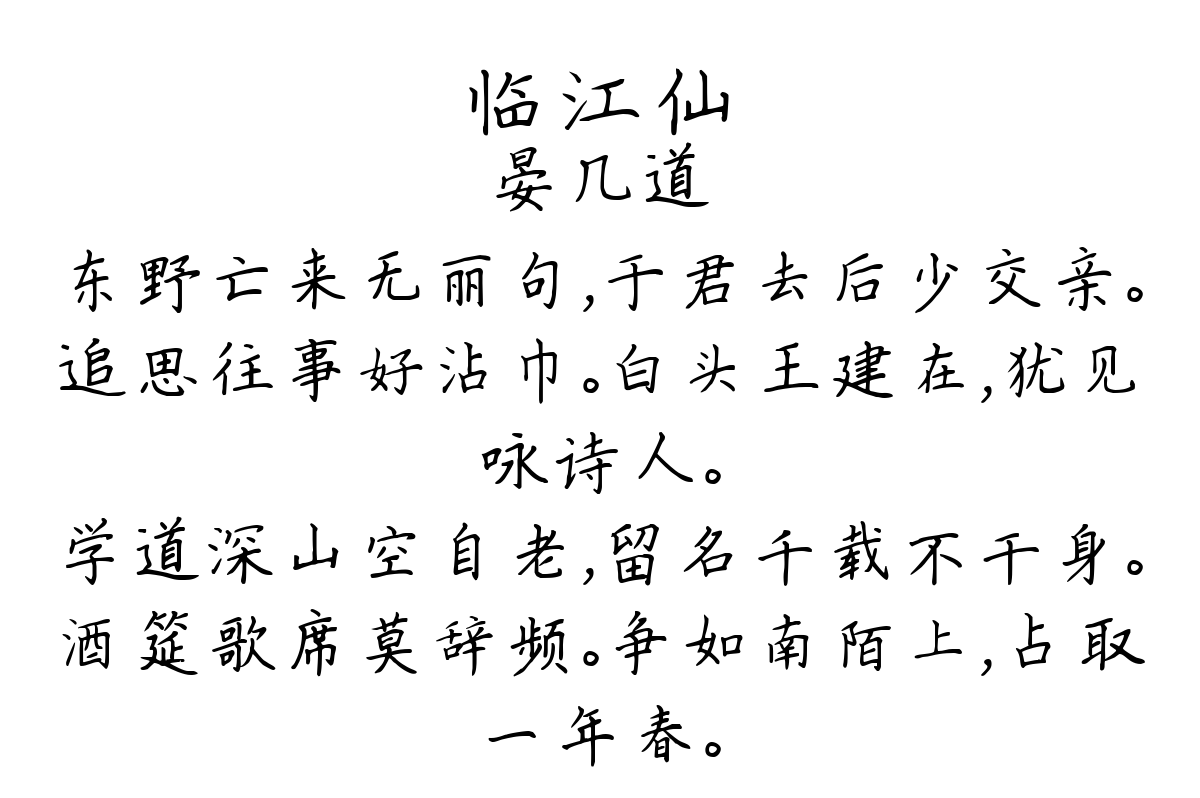 临江仙
晏几道
东野亡来无丽句,于君去后少交亲。
追思往事好沾巾。白头王建在,犹见
咏诗人。
学道深山空自老,留名千载不干身。
酒筵歌席莫辞频。争如南陌上,占取
一年春。